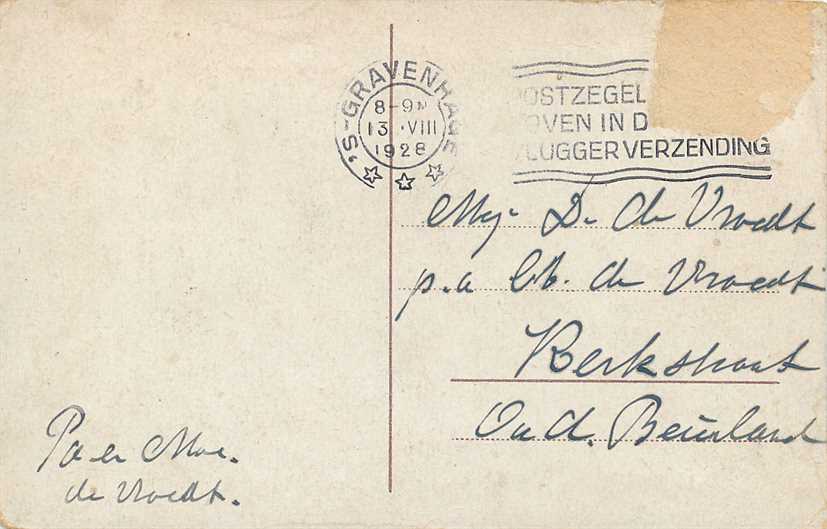 'S-GRAVENHAGE
8-9N
13.VIII
1928
POSTZEGEL
BOVEN IN D
VLUGGER VERZENDING
Mej. D. de Vroedt
p.a de Vroedt
Kerkstraat
Oud. Beierland
Pa en Moe.
de Vroedt.